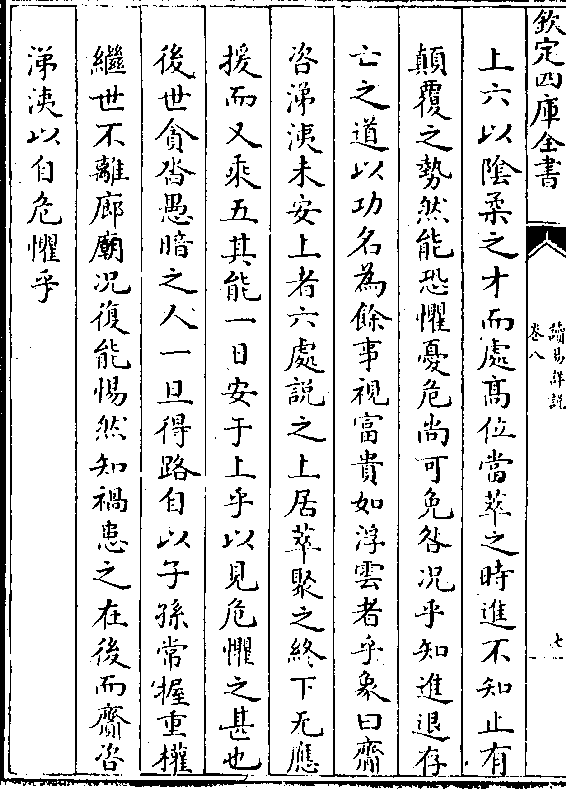 欽定四庫全書
讀易詳說
卷八
七
上六以陰柔之才而處髙位當萃之時進不知止有
顛覆之勢然能恐懼憂危尚可免咎况乎知進退存
亡之道以功名為餘事視富貴如浮雲者乎象曰齎
咨涕洟未安上者六處説之上居萃聚之終下无應
援而又乘五其能一日安于上乎以見危懼之甚也
後世貪㳫愚暗之人一旦得路自以子孫常握重權
繼世不離廊廟况復能惕然知禍患之在後而齎咨
涕洟以自危懼乎